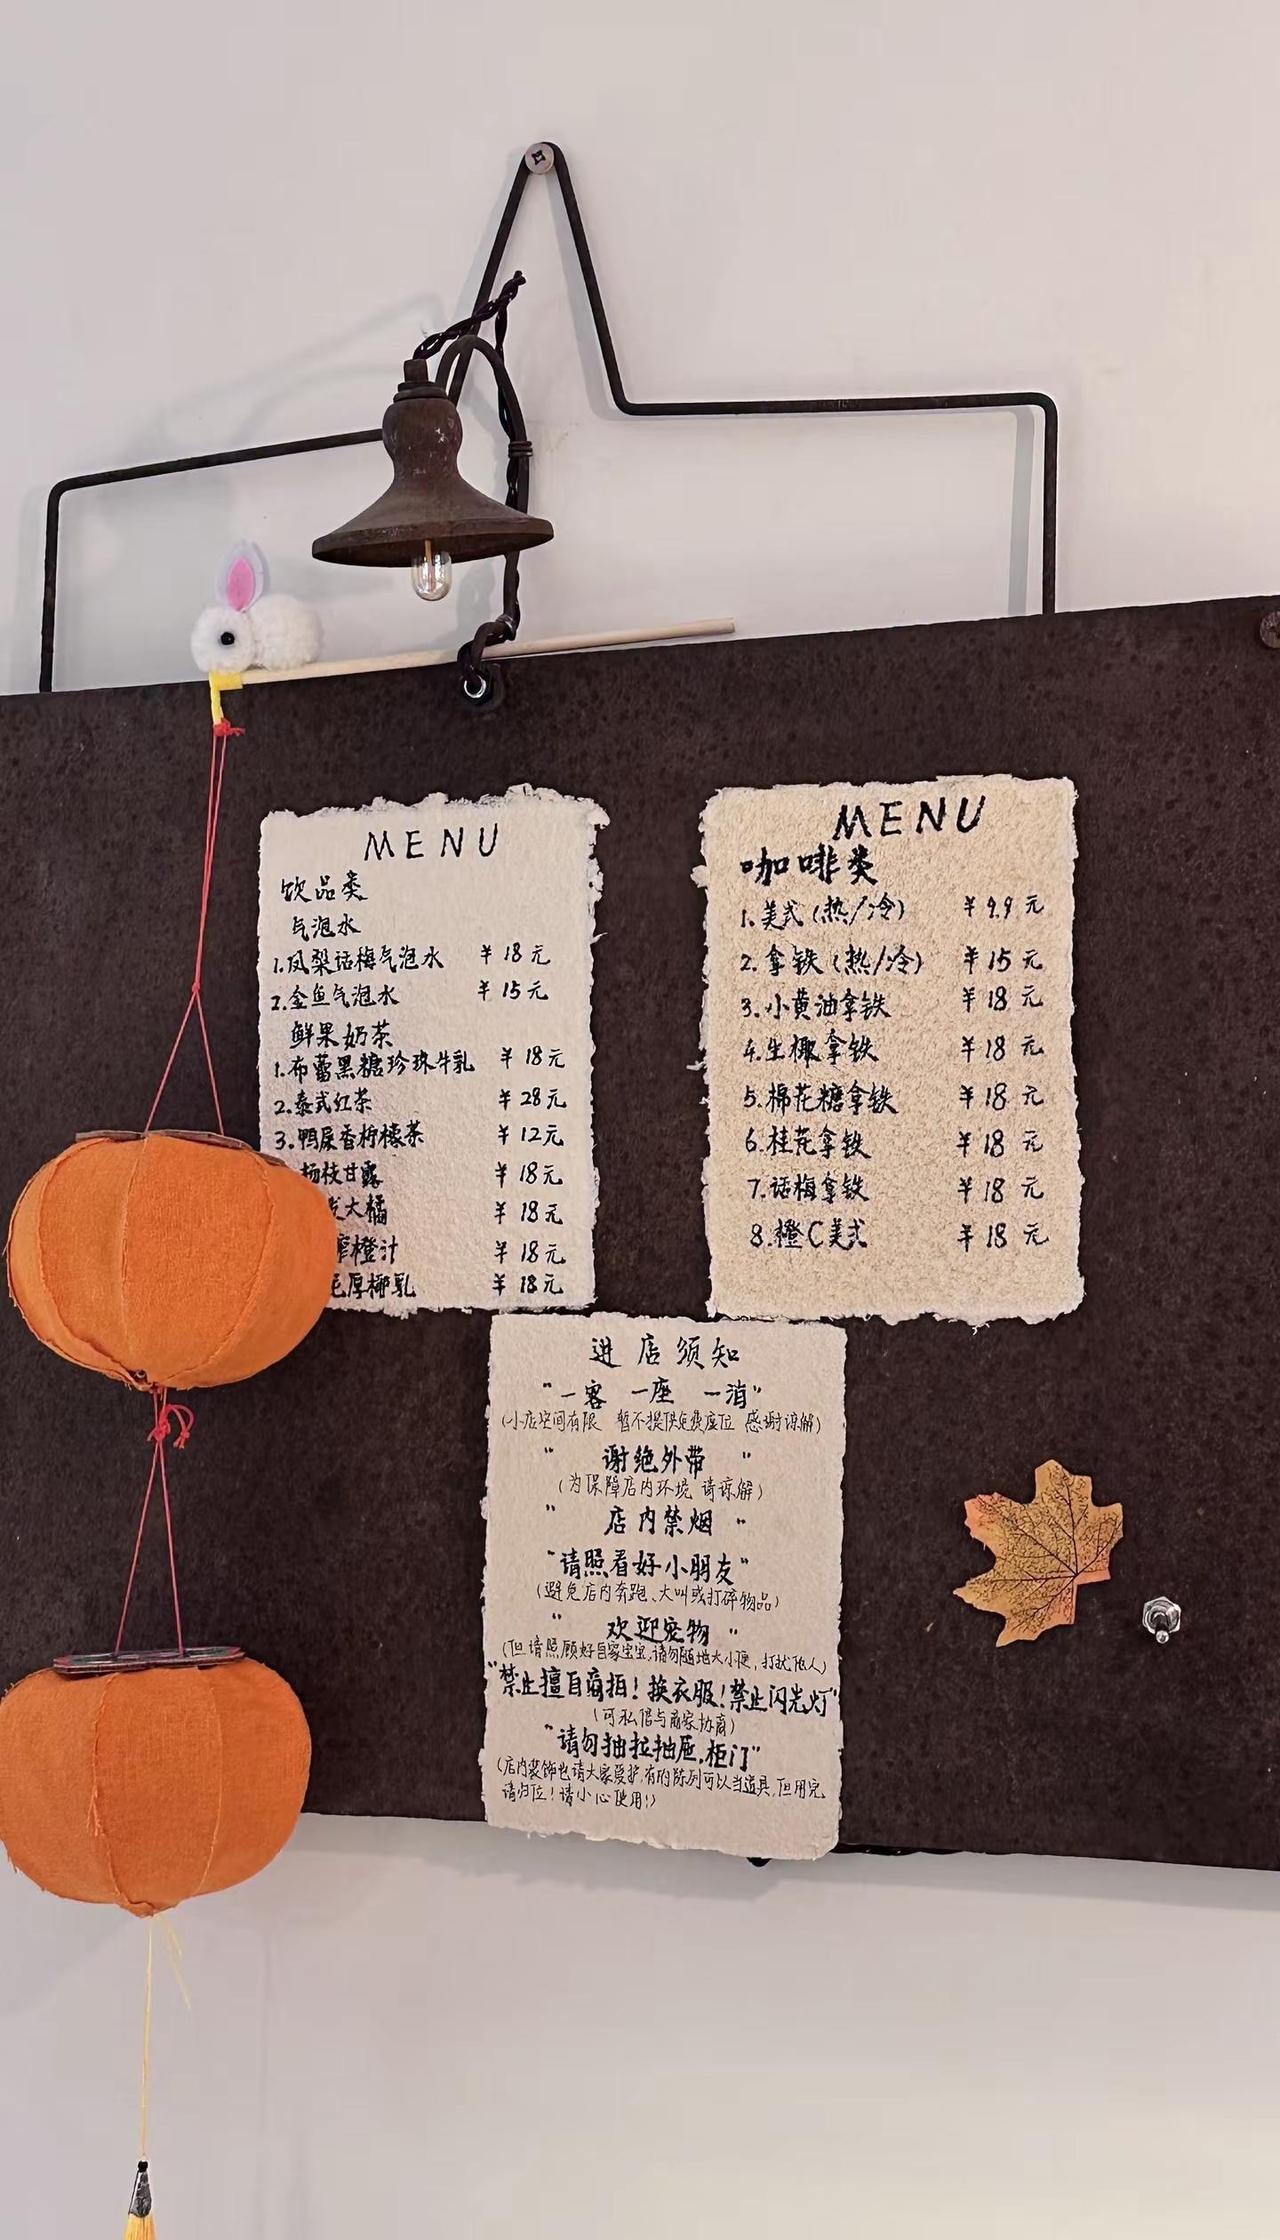 MENU
饮品类
气泡水
1.凤梨话梅气泡水 ¥18元
2.金鱼气泡水 ¥15元
鲜果奶茶
1.布蕾黑糖珍珠牛乳 ¥18元
2.泰式红茶 ¥28元
3.鸭屎香柠檬茶 ¥12元
杨枝甘露 ¥18元
大橘 ¥18元
榨橙汁 ¥18元
厚椰乳 ¥18元
MENU
咖啡类
1.美式(热/冷) ¥9.9元
2.拿铁(热/冷) ¥15元
3.小黄油拿铁 ¥18元
4.生椰拿铁 ¥18元
5.棉花糖拿铁 ¥18元
6.桂花拿铁 ¥18元
7.话梅拿铁 ¥18元
8.橙C美式 ¥18元
进店须知
"一客 一座 一消"
(小店空间有限 暂不提供免费座位 感谢谅解)
"谢绝外带"
(为保障店内环境 请谅解)
"店内禁烟"
"请照看好小朋友"
(避免店内奔跑、大叫或打碎物品)
"欢迎宠物"
(但请照顾好自家宝宝,请勿随地大小便,打扰他人)
"禁止擅自商拍!换衣服!禁止闪光灯"
(可私信与商家协商)
"请勿抽拉抽屉,柜门"
(店内装饰也请大家爱护,有的陈列可以当道具,但用完
请归位!请小心使用!)